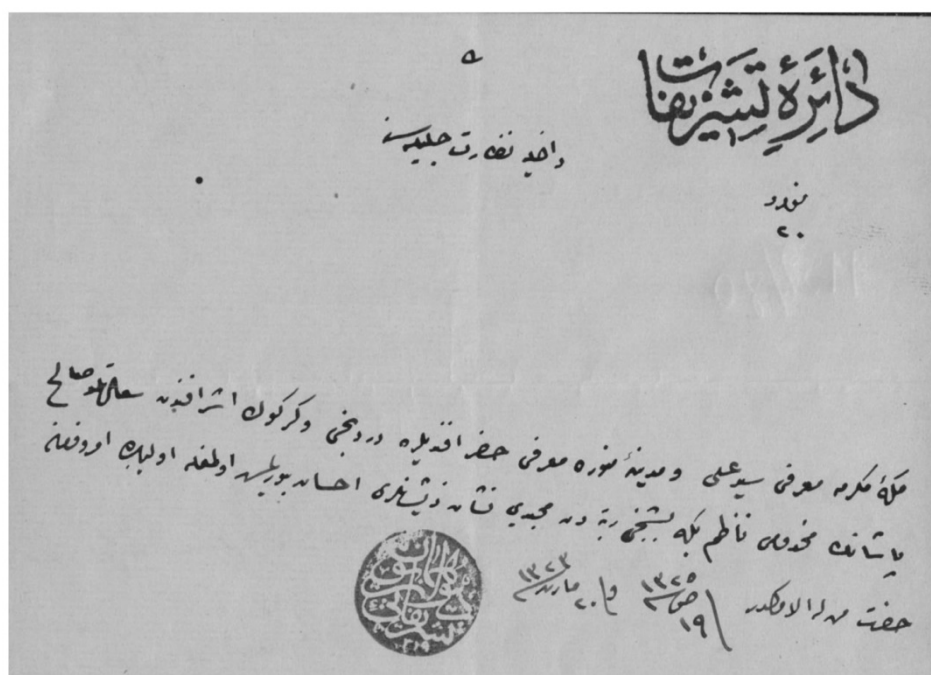 دائرهٔ تشریفات
داخلیه نظارت جلیله‌سنه
نومرو
٢٠
مکهٔ مکرمه معرفی سید علی و مدینهٔ منوره معرفی خضر افندیلره دردنجی و کرکوک اشرافندن سعادتلو صالح
پاشانك مخدومی ناظم بكه بشنجی رتبه‌دن مجیدی نشان ذیشانلری احسان بیورلمش اولمغله اولبابده امر و فرمان
حضرت من له الامركدر ١٩ ص ١٣٢٥ و ٢٠ مارت ١٣٢٣